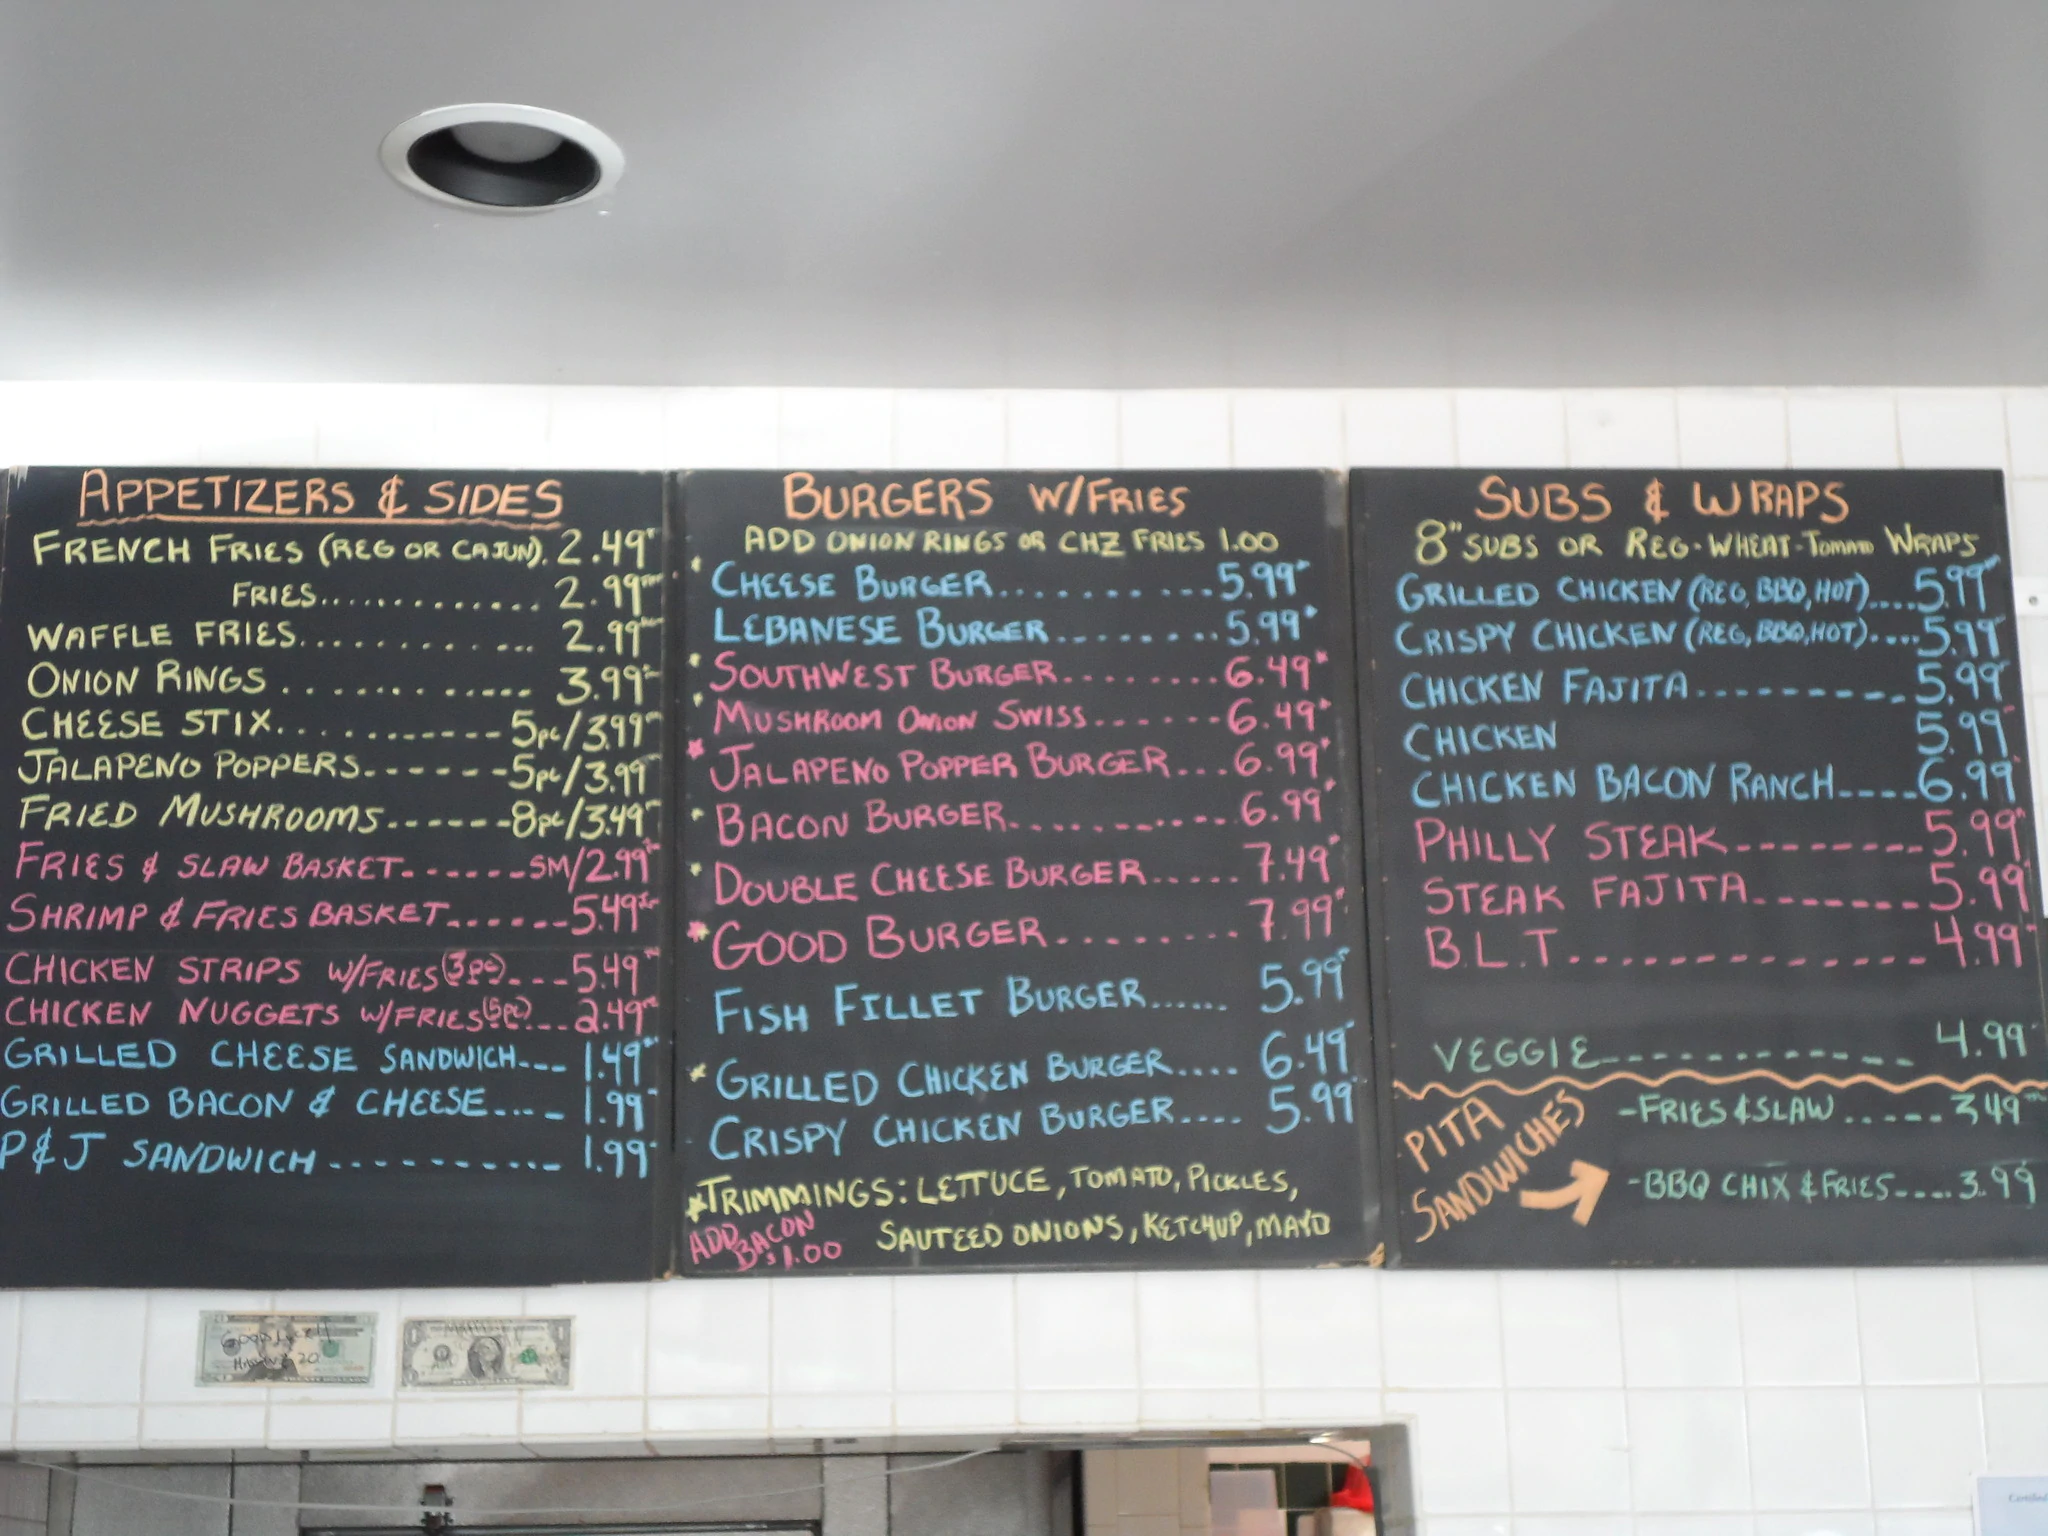 APPETIZERS & SIDES
FRENCH FRIES (REG OR CAJUN). 2.49
FRIES............. 2.99
WAFFLE FRIES............ 2.99
ONION RINGS ............ 3.99
CHEESE STIX........... 5pc/3.99
JALAPENO POPPERS------5pc/3.99
FRIED MUSHROOMS------8pc/3.49
FRIES & SLAW BASKET------SM/2.99
SHRIMP & FRIES BASKET......5.49
CHICKEN STRIPS W/FRIES (3pc)...5.49
CHICKEN NUGGETS W/FRIES (5pc)...2.49
GRILLED CHEESE SANDWICH---1.49
GRILLED BACON & CHEESE....1.99
P&J SANDWICH----------1.99
BURGERS W/FRIES
ADD ONION RINGS OR CHZ FRIES 1.00
CHEESE BURGER...........5.99
LEBANESE BURGER........5.99
SOUTHWEST BURGER........6.49
MUSHROOM ONION SWISS......6.49
JALAPENO POPPER BURGER...6.99
BACON BURGER...........6.99
DOUBLE CHEESE BURGER.....7.49
GOOD BURGER.........7.99
FISH FILLET BURGER...... 5.99
GRILLED CHICKEN BURGER.... 6.49
CRISPY CHICKEN BURGER.... 5.99
*TRIMMINGS: LETTUCE, TOMATO, PICKLES,
SAUTEED ONIONS, KETCHUP, MAYO
ADD BACON
$1.00
SUBS & WRAPS
8" SUBS OR REG-WHEAT-TOMATO WRAPS
GRILLED CHICKEN (REG, BBQ, HOT)....5.99
CRISPY CHICKEN (REG, BBQ, HOT)....5.99
CHICKEN FAJITA----------5.99
CHICKEN 5.99
CHICKEN BACON RANCH----6.99
PHILLY STEAK---------5.99
STEAK FAJITA--------5.99
B.L.T.------------- 4.99
VEGGIE------------- 4.99
PITA SANDWICHES
-FRIES & SLAW ......3.49
-BBQ CHIX & FRIES....3.99